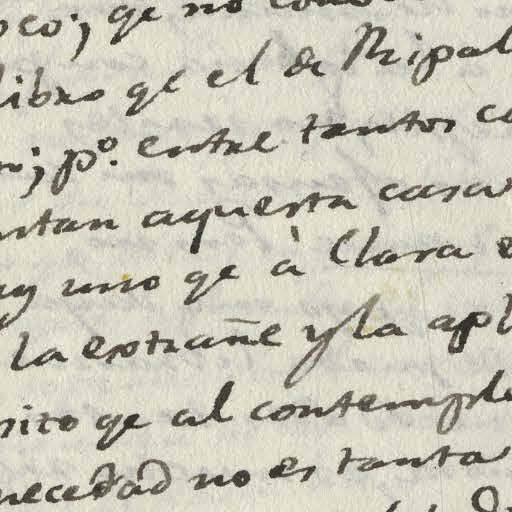 oco; qe no cono
libro qe el de Ripal
; po. entre tantos ca
ntan aquesta casa
ay uno qe à Clara e
la extrañe y la apl
sito qe al contempla
necedad no es tanta